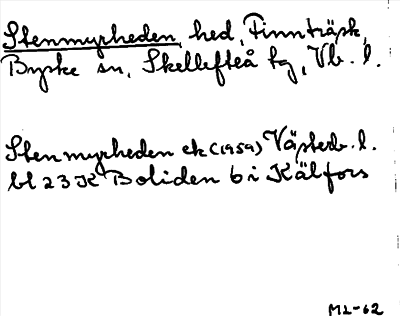 Stenmyrheden, hed, Finnträsk,
Byske sn, Skellefteå tg, Vb. l.
Stenmyrheden ek (1959) Västerb. l.
bl 23 K Boliden 6 i Kälfors
ML-62